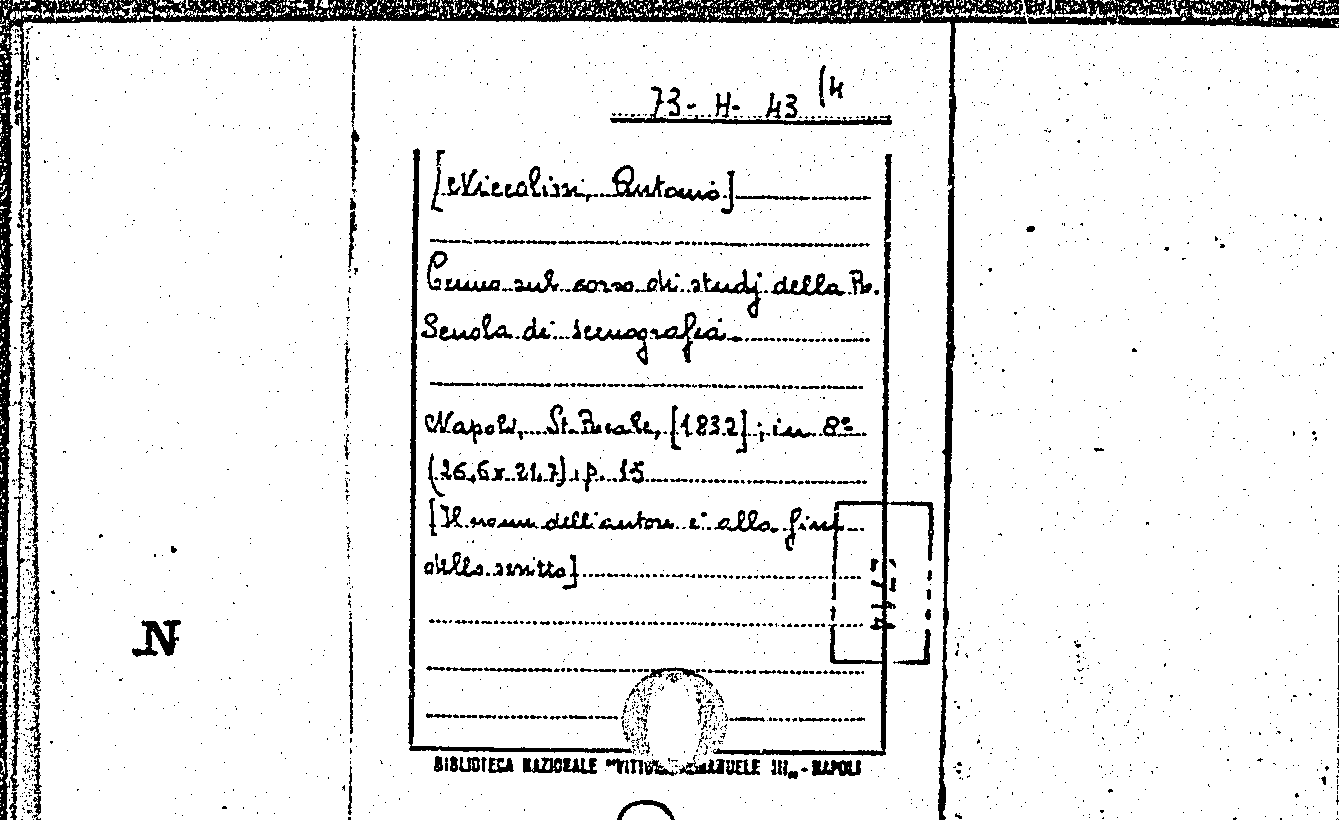 73-H-43 (4
[Niccolini, Antonio]
Cenno sul corso di studj della R.
Scuola di scenografia.
Napoli, St. Reale, [1832]; in 8º
(26,6x21,7), p. 15
[Il nome dell'autore è alla fine
dello scritto]
N
BIBLIOTECA NAZIONALE "VITTORIO EMANUELE III" - NAPOLI